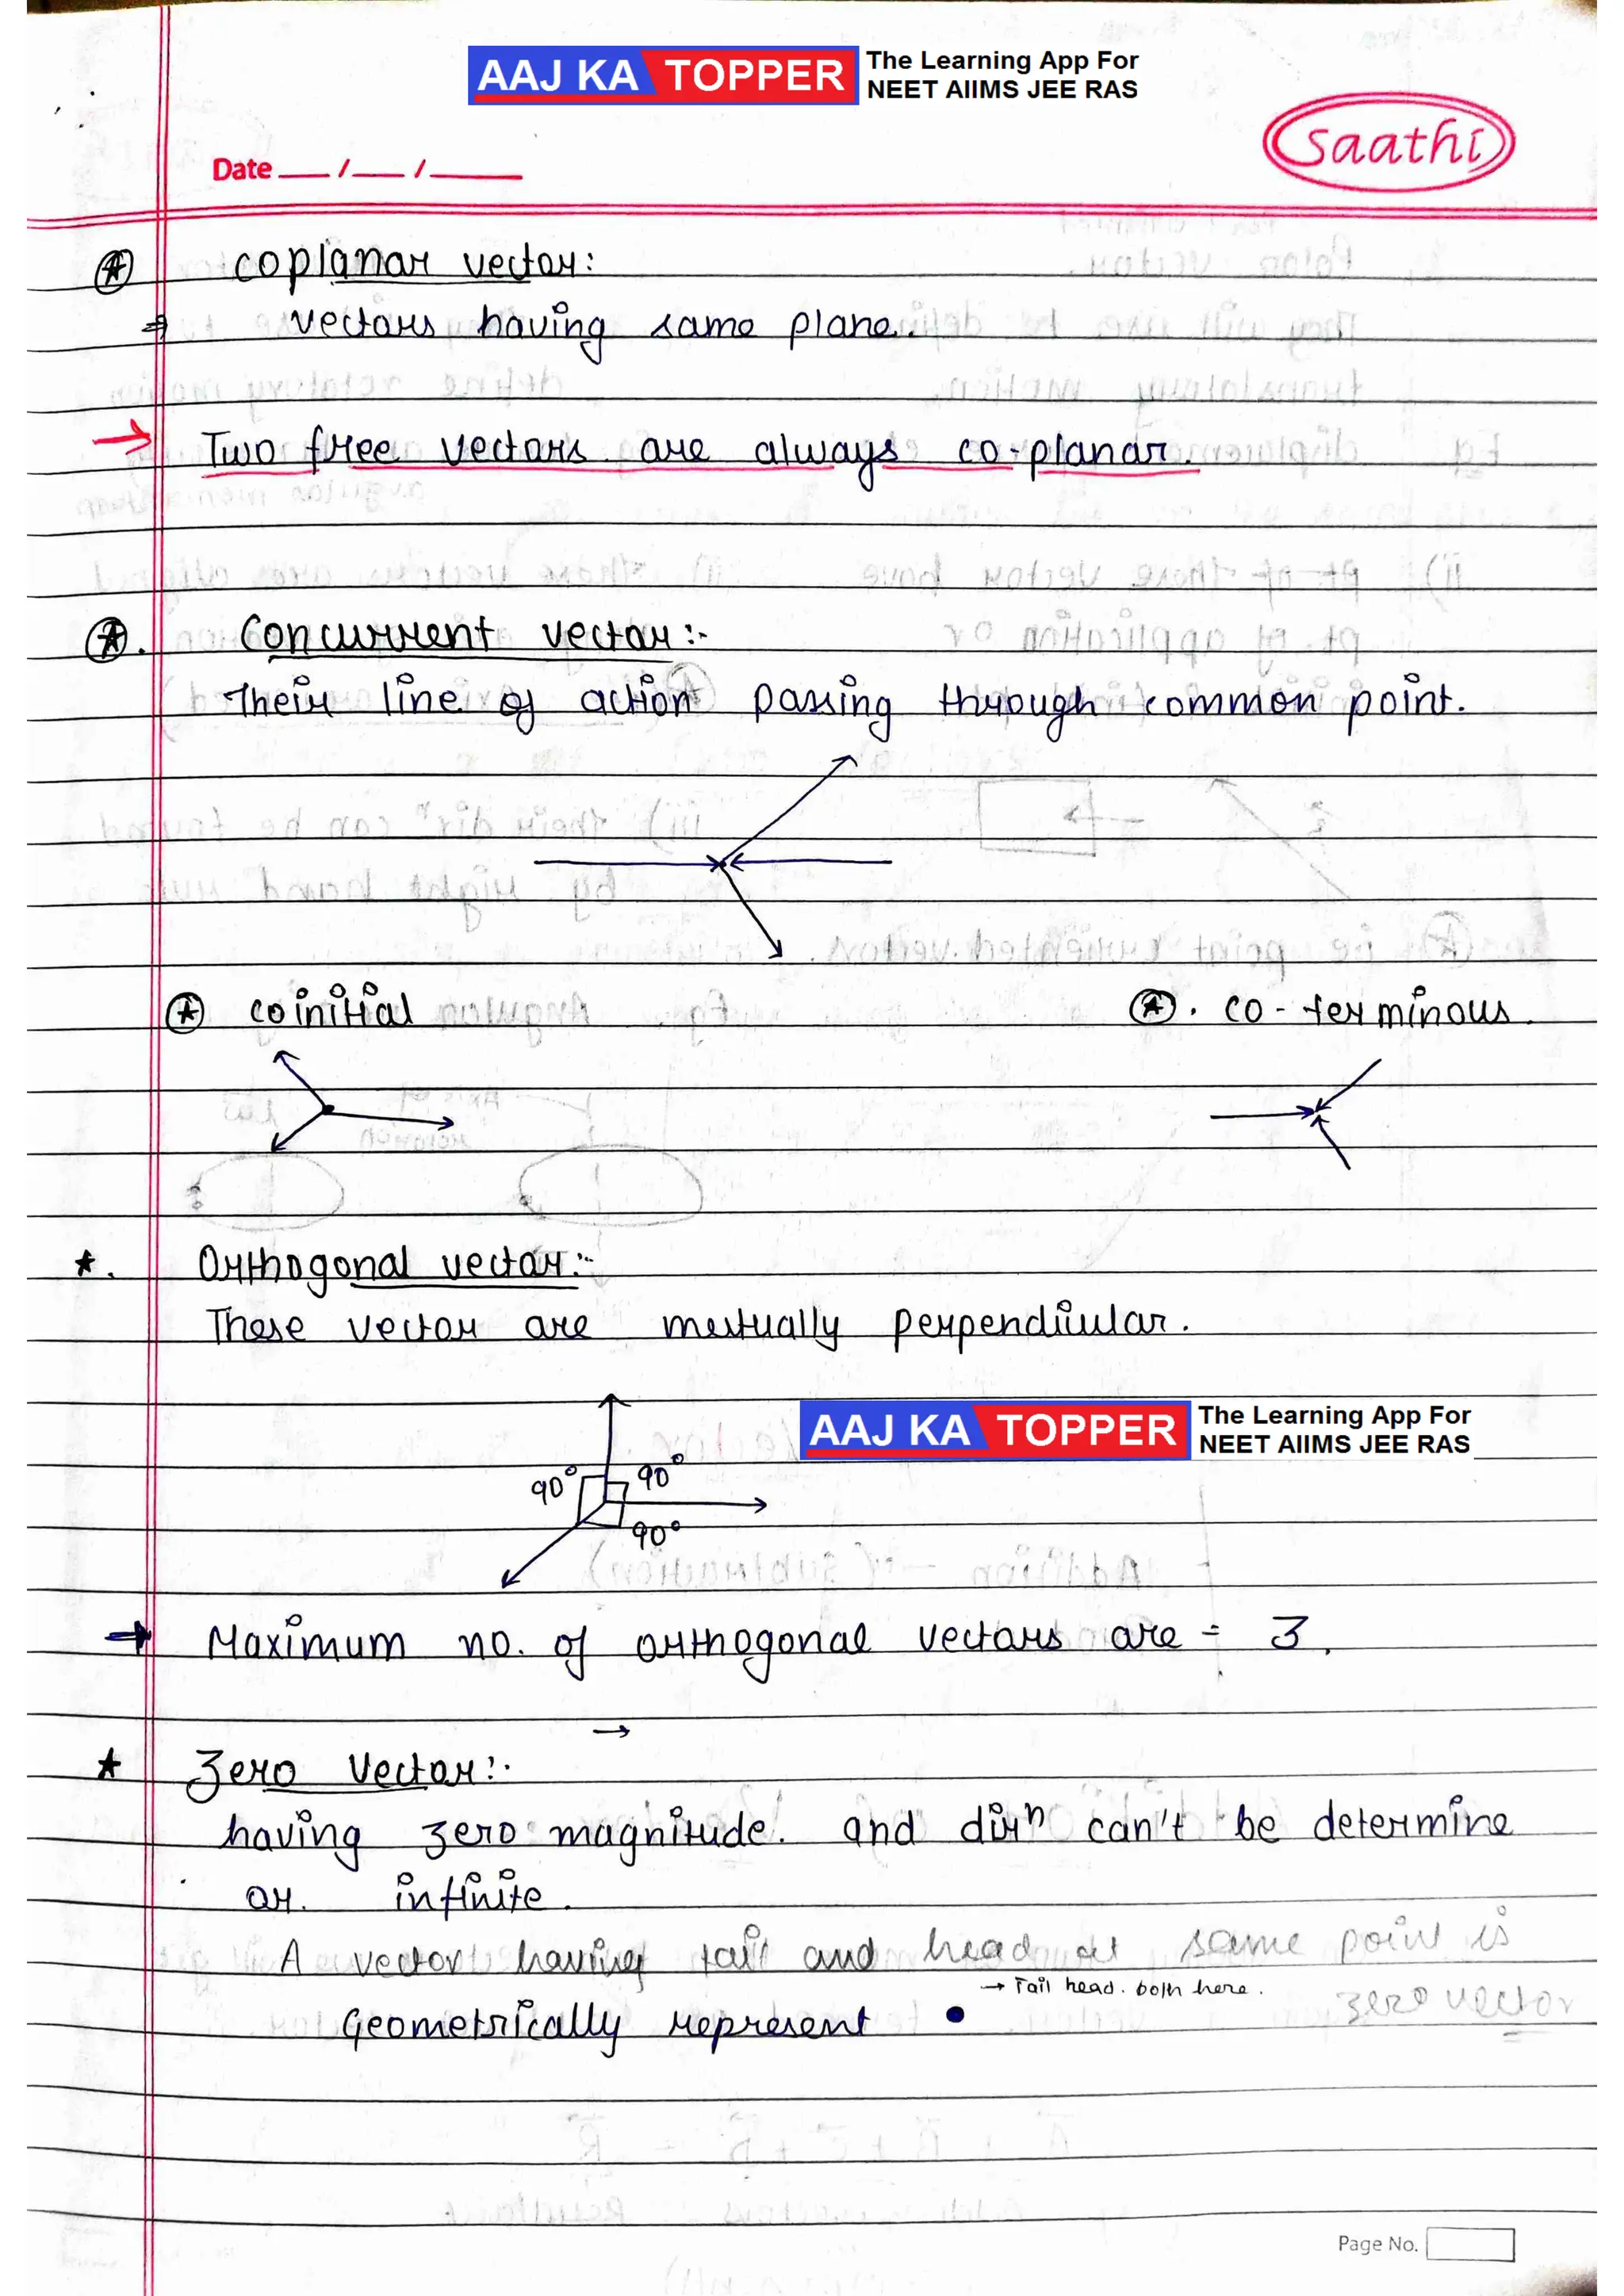 AAJ KA TOPPER The Learning App For
NEET AIIMS JEE RAS
saathi
Date ___/___/_____
coplanar vector:
⇒ vectors having same plane.
→ Two free vectors are always co-planar.
Concurrent vector:-
Their line of action passing through common point.
coinitial
co-terminous.
Orthogonal vector:-
These vector are mutually perpendicular.
AAJ KA TOPPER The Learning App For
NEET AIIMS JEE RAS
90° 90°
90°
→ Maximum no. of orthogonal vectors are = 3.
→
Zero Vector:-
having zero magnitude. and dirⁿ can't be determine
or. infinite.
A vector having tail and head at same point is
zero vector
→ Tail head. both here.
Geometrically represent
Page No.